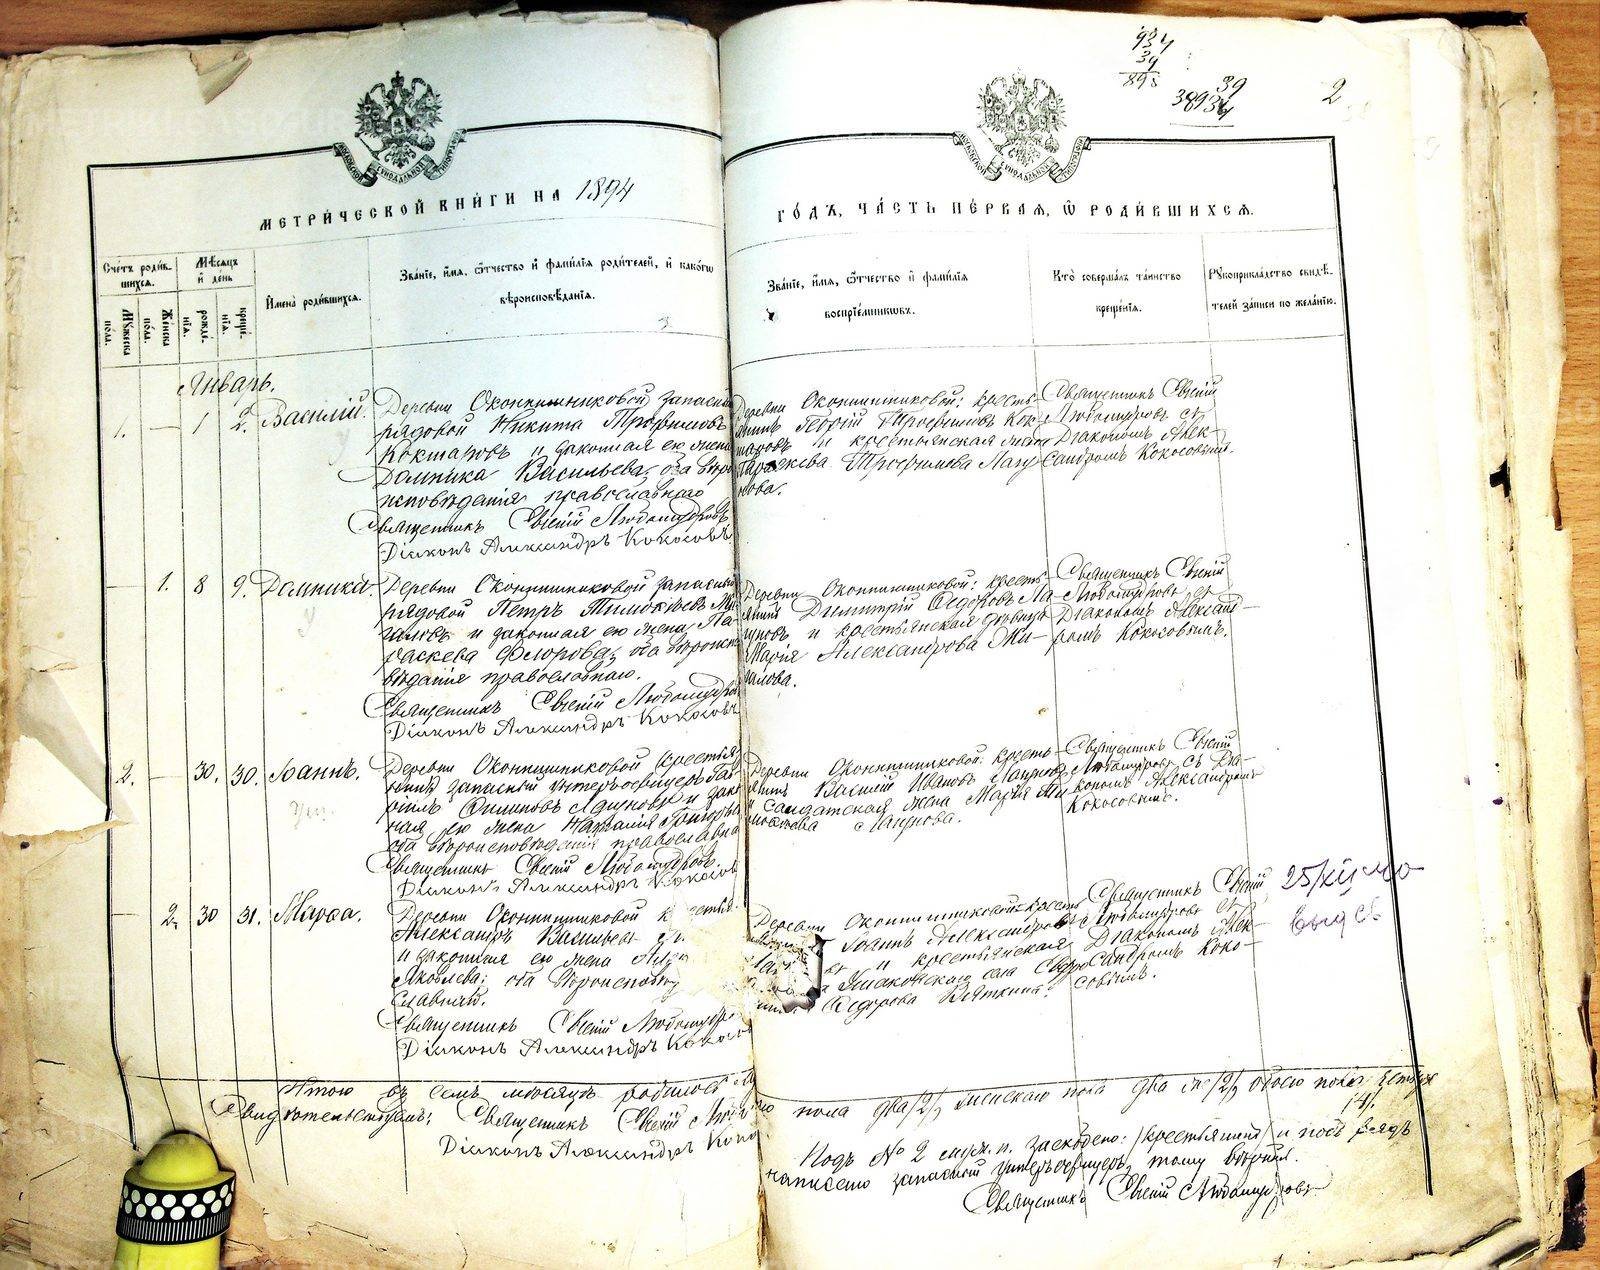 934
39
895
39
38934
2
МОСКОВСКОЙ СѴНОДАЛЬНОЙ ТИПОГРАФІИ
МОСКОВСКОЙ СѴНОДАЛЬНОЙ ТИПОГРАФІИ
МЕТРИ́ЧЕСКОЙ КНИ́ГИ НА 1894
ГО́ДЪ, ЧА́СТЬ ПЕ́РВАЯ, Ѡ РОДИ́ВШИХСЯ.
Сче́тъ роди́в-
шихся.
Му́жеска
по́ла.
Же́нска
по́ла.
Мѣ́сяцъ
и де́нь
рожде́-
нія.
креще́-
нія.
Имена̀ роди́вшихся.
Зва́ніе, и́мя, ѻ́тчество и фами́лія роди́телей, и како́гѡ
вѣроисповѣ́данія.
Зва́ніе, и́мя, ѻ́тчество и фами́лія
воспрїе́мниковъ.
Кто̀ соверша́лъ та́инство
креще́нія.
Рукоприкла́дство свидѣ́-
телей за́писи по жела́нію.
Январь.
1. — 1 2. Василій.
Деревни Оконишниковой запасный
рядовой Никита Трофимовъ
Кокшаровъ и законная его жена
Домника Васильева, оба вѣро
исповѣданія православнаго
Священникъ Евгеній Любомудровъ
Діаконъ Александръ Кокосовъ
Деревни Оконишниковой: кресть-
янинъ Георгій Трофимовъ Кок-
шаровъ и крестьянская жена
Параскева Трофимова Лагу
нова.
Священникъ Евгеній
Любомудровъ съ
Діакономъ Алек-
сандромъ Кокосовымъ.
— 1. 8 9. Домника.
Деревни Оконишниковой запасный
рядовой Петръ Тимофѣевъ Жи
галовъ и законная его жена Па-
раскева Флорова, оба вѣроиспо
вѣданія православнаго.
Священникъ Евгеній Любомудров
Діаконъ Александръ Кокосовъ
Деревни Оконишниковой: кресть-
янинъ Димитрій Ѳедоровъ Ла-
гуновъ и крестьянская дѣвица
Марія Александрова Жи-
галова.
Священникъ Евгеній
Любомудровъ съ
Діакономъ Александ-
ромъ Кокосовымъ.
2. — 30. 30. Іоаннъ.
Деревни Оконишниковой крестья-
нинъ запасный унтеръофицеръ Гав
ріилъ Филиповъ Лагуновъ и закон
ная его жена Наталія Григорьева
оба вѣроисповѣданія православна
Священникъ Евгеній Любомудровъ.
Діаконъ Александръ Кокосов
Деревни Оконишниковой: кресть-
янинъ Василій Ивановъ Лагуновъ
и солдатская жена Марія Ти
моѳеева Лагунова.
Священникъ Евгеній
Любомудровъ съ Діа-
кономъ Александромъ
Кокосовымъ.
— 2. 30 31. Марѳа.
Деревни Оконишниковой крестья
Александръ Васильевъ
и законная его жена
Яковлева; оба вѣроисповѣд
славнаго.
Священникъ Евгеній Любомудро
Діаконъ Александръ Кокосо
Деревни Оконишниковой: кресть
Іоаннъ Александровъ
и крестьянская
Ушаковскаго села
Ѳедорова Вяткина.
Священникъ Евгеній
Любомудровъ съ
Діакономъ Алек-
сандромъ Коко-
совымъ.
25/XII-40
выд св
Итого въ семъ мѣсяцѣ родилось му
го пола два /2/, женскаго пола два /2/, обоего пола четыре
/4/.
Свидѣтельствуемъ: Священникъ Евгеній Любо
Діаконъ Александръ Коко
Подъ № 2 муж. п. заскоблено: /крестьянинъ/ и подъ рядъ
написано запасной унтеръофицеръ, тому вѣрить.
Священникъ Евгеній Любомудровъ